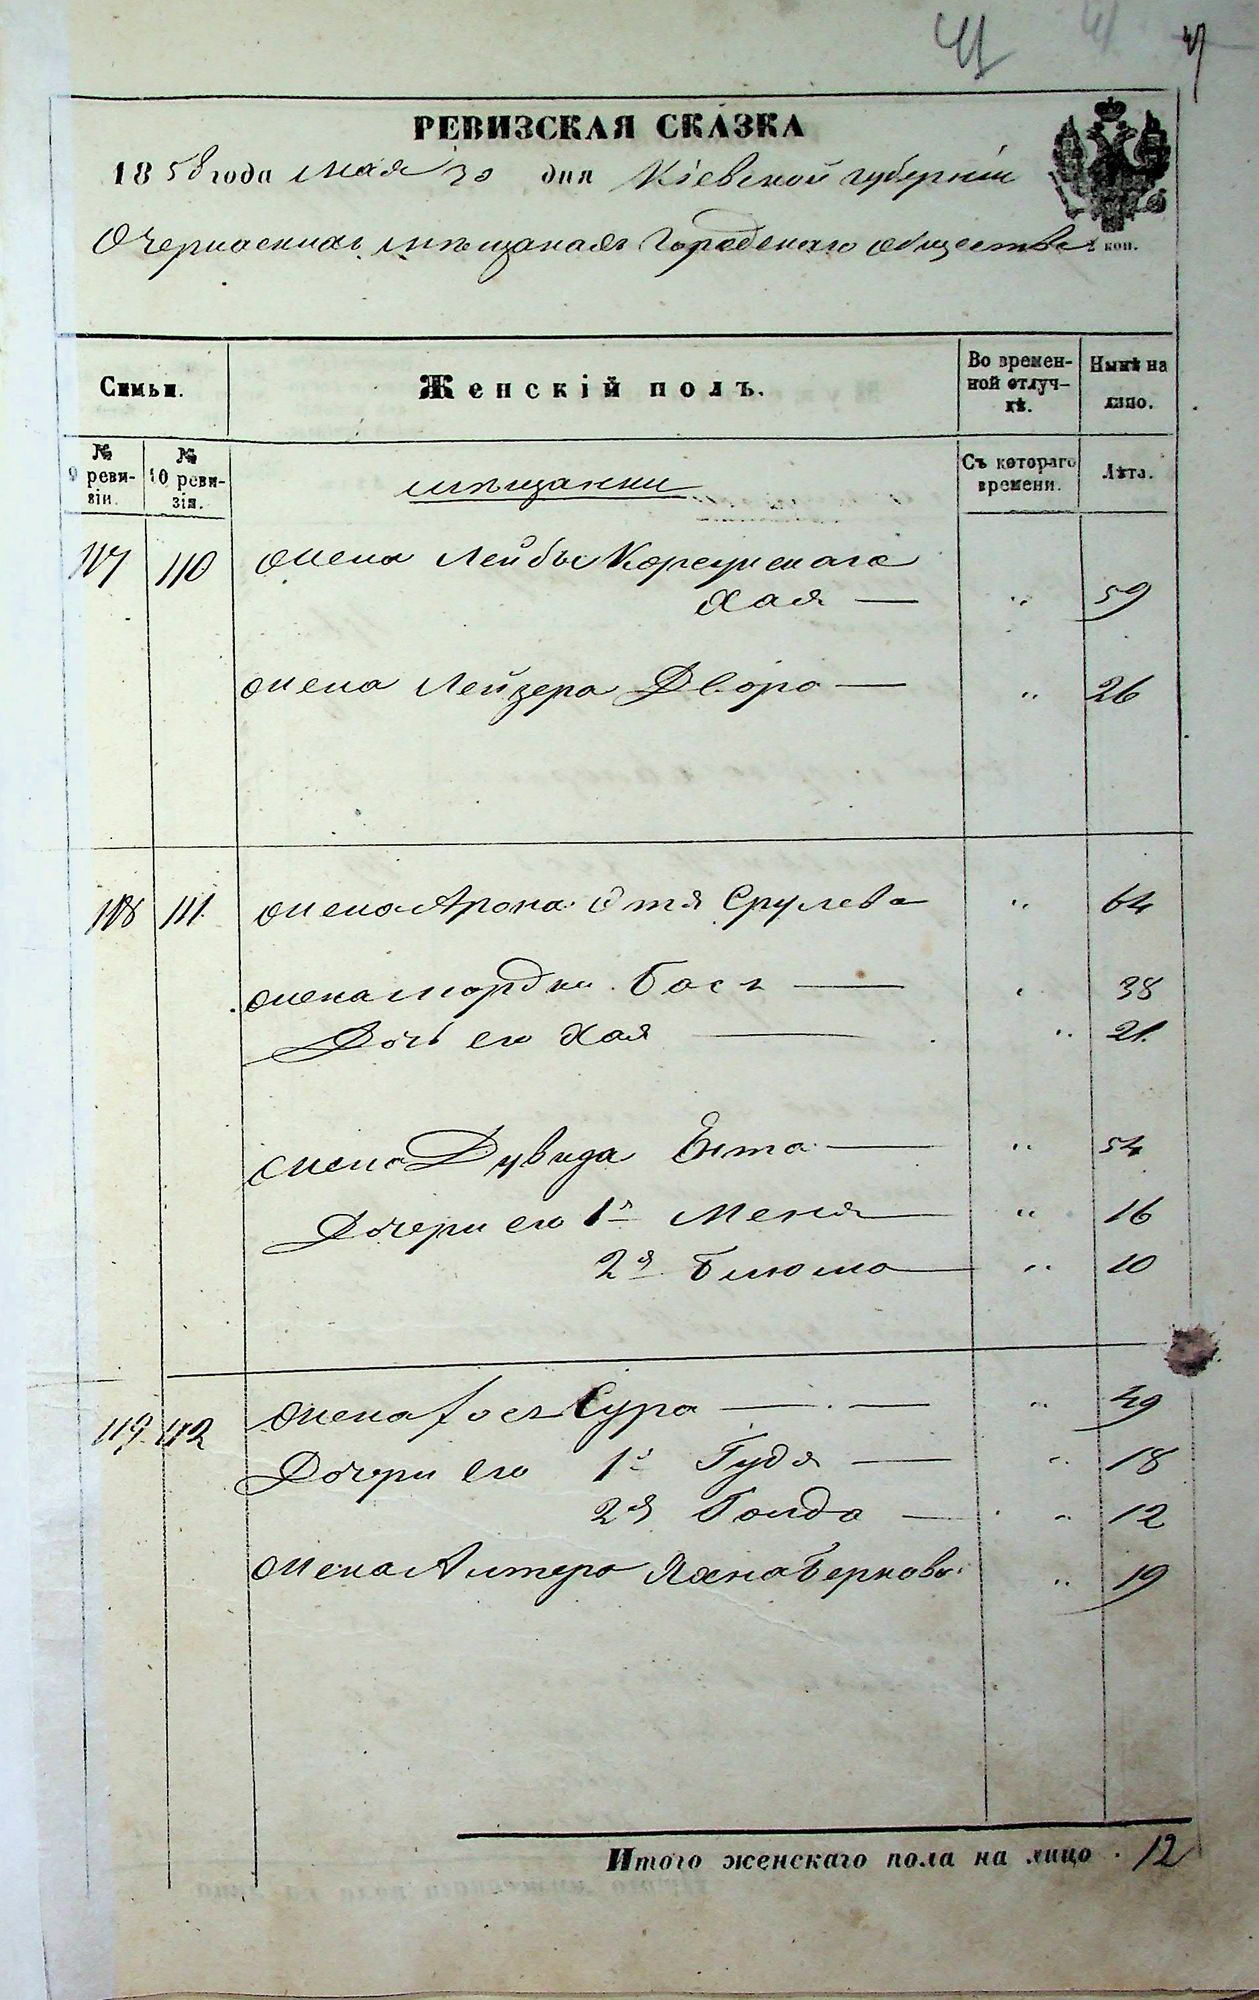 41
РЕВИЗСКАЯ СКАЗКА
1858 года мая 30 дня Кіевской губерніи
О Черкаскихъ мѣщанахъ Городскаго общества
коп.
Семьи. Женскій полъ. Во временной отлучкѣ. Нынѣ на лицо.
№ 9 ревизіи. № 10 ревизія. мѣщанки Съ котораго времени. Лѣта.
117 110 жена Лейбы Корсунскаго
Хая — " 59
жена Лейзера Двора — " 26
118 111. жена Арона Этя Срулева " 64
жена Мордки Бася — " 38
Дочь его Хая — " 21.
жена Дувида Ента — " 54
Дочери его 1я Меня — " 16
2я Блюма — " 10
119. 112 жена Іося Сура — " 49
Дочери его 1я Гудя — " 18
2я Голда — " 12
жена Алтера Яхна Беркова " 19
Итого женскаго пола на лицо . 12